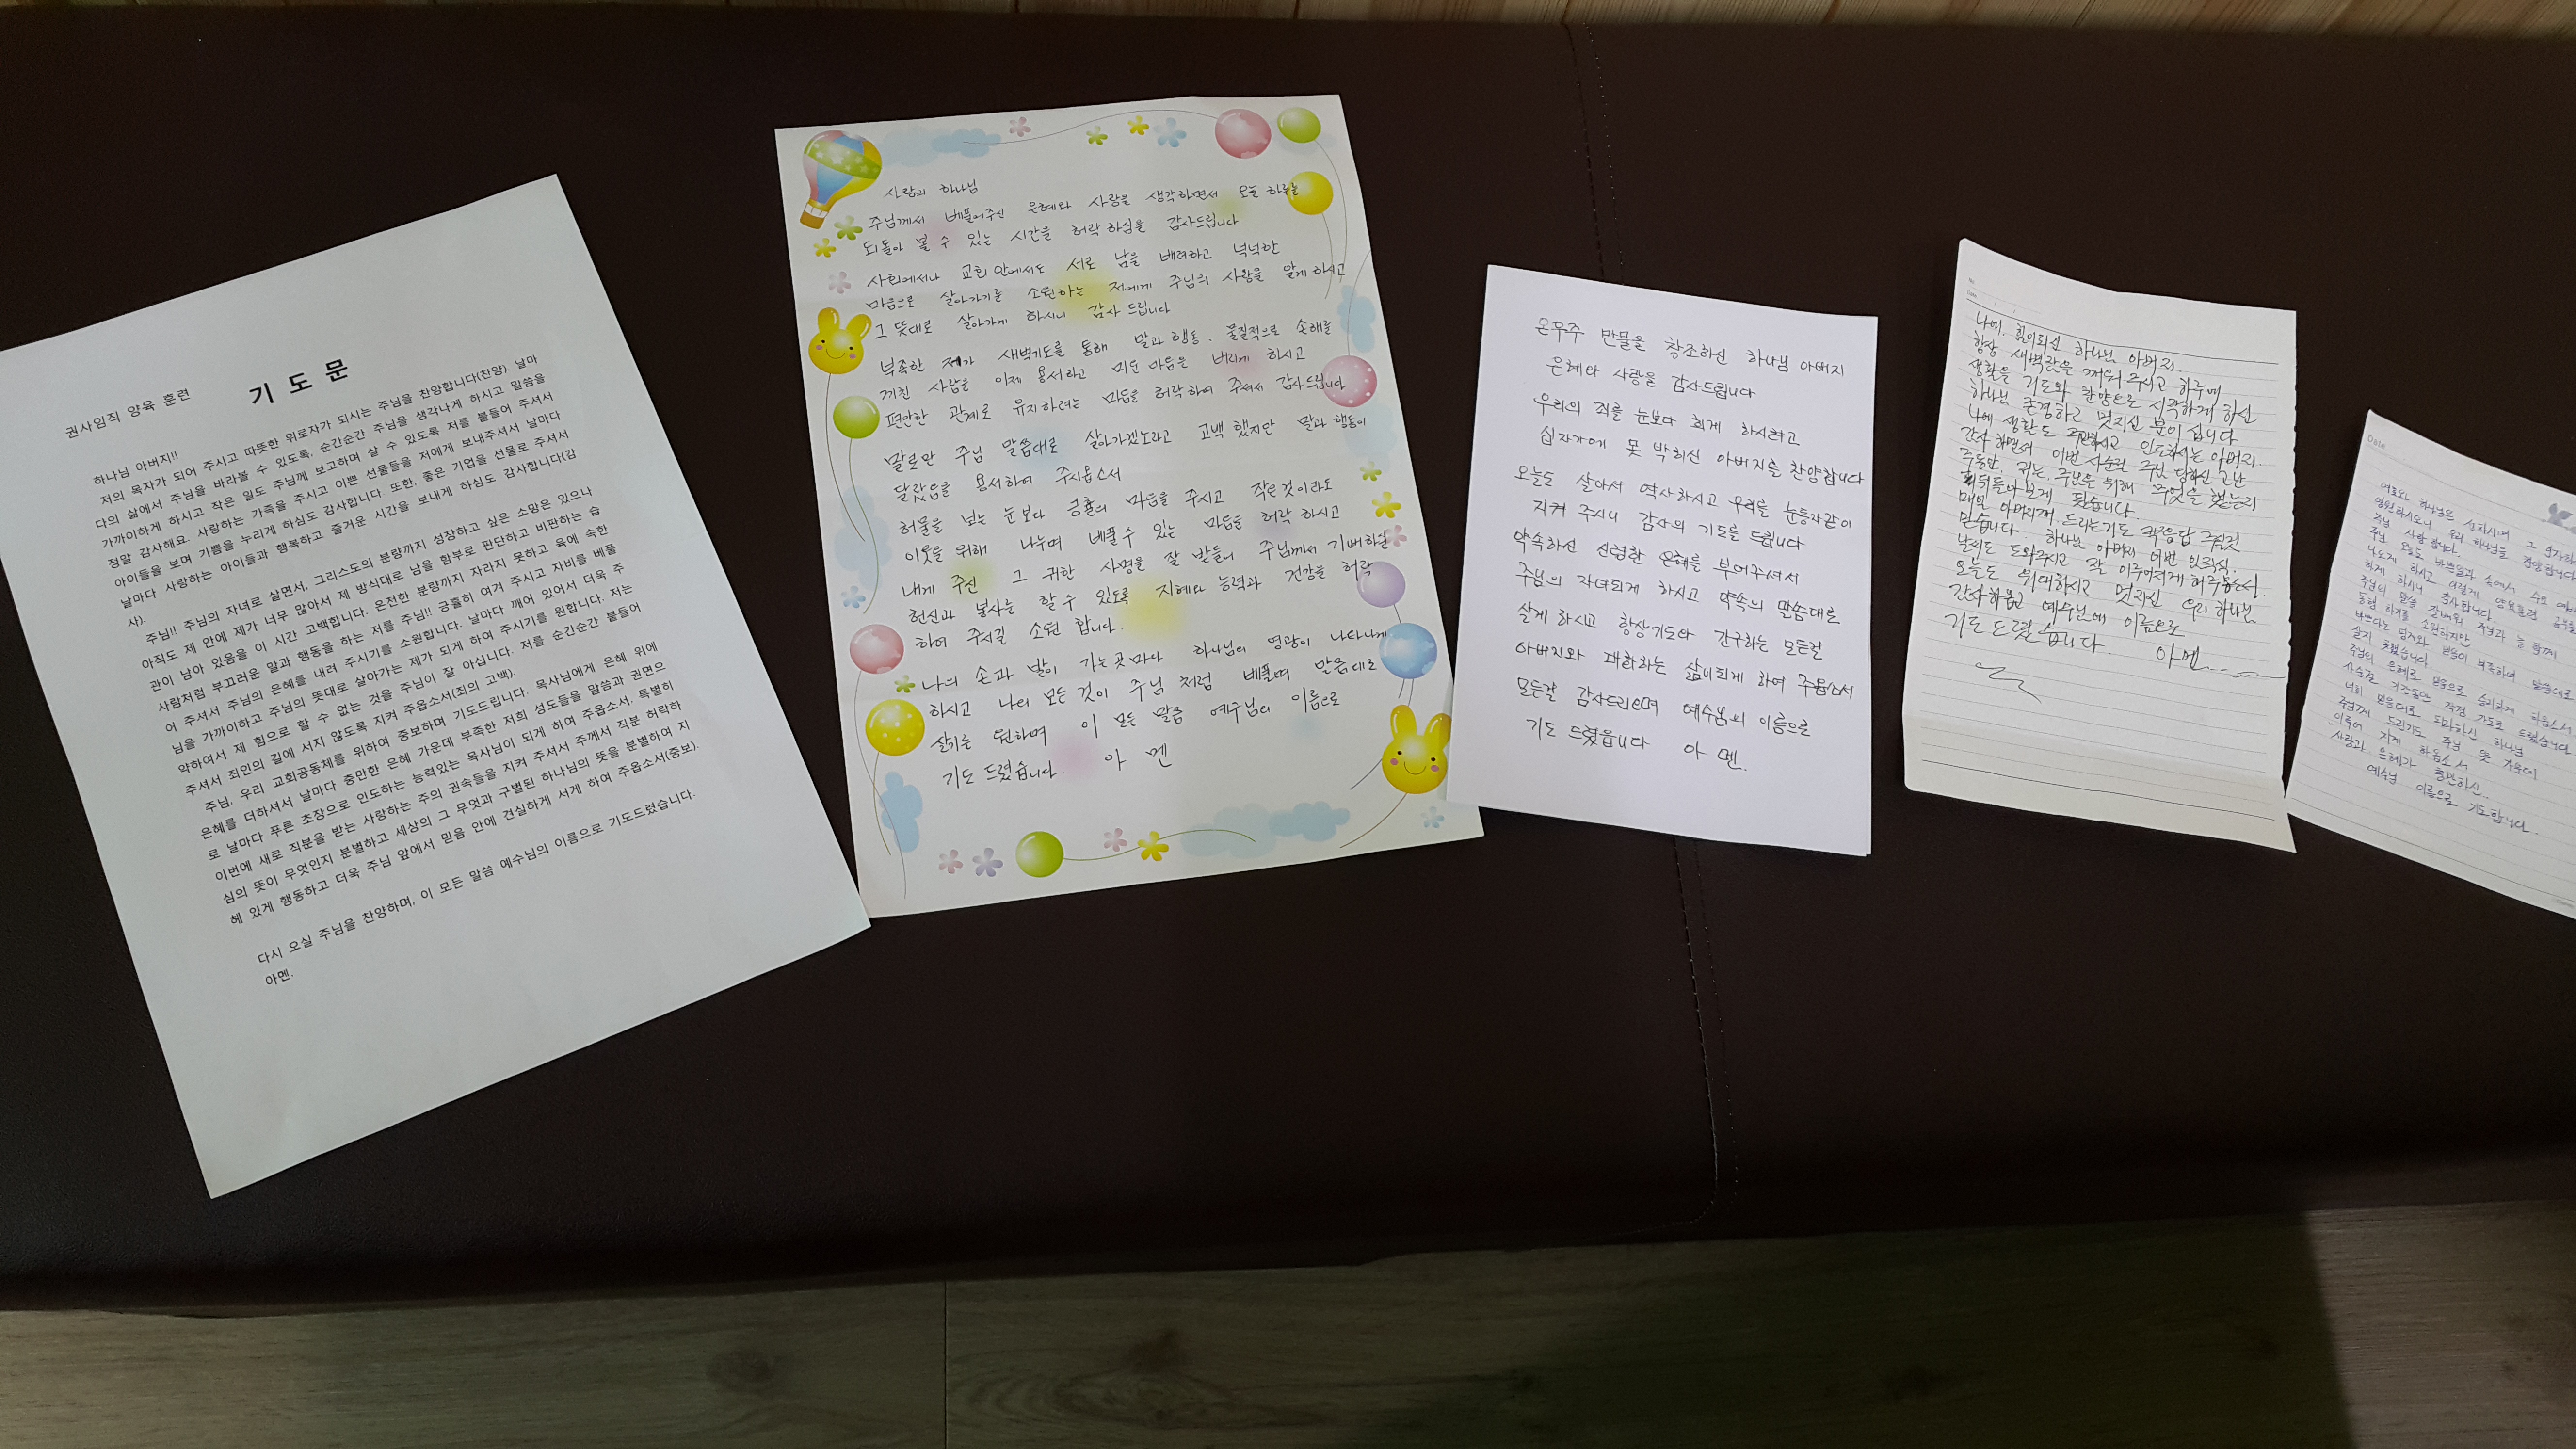 권사임직 양육 훈련
기 도 문
하나님 아버지!!
저의 목자가 되어 주시고 따뜻한 위로자가 되시는 주님을 찬양합니다(찬양). 날마
다의 삶에서 주님을 바라볼 수 있도록, 순간순간 주님을 생각나게 하시고 말씀을
가까이하게 하시고 작은 일도 주님께 보고하며 살 수 있도록 저를 붙들어 주셔서
정말 감사해요. 사랑하는 가족을 주시고 이쁜 선물들을 저에게 보내주셔서 날마다
아이들을 보며 기쁨을 누리게 하심도 감사합니다. 또한, 좋은 기업을 선물로 주셔서
날마다 사랑하는 아이들과 행복하고 즐거운 시간을 보내게 하심도 감사합니다(감
사).
주님!! 주님의 자녀로 살면서, 그리스도의 분량까지 성장하고 싶은 소망은 있으나
아직도 제 안에 제가 너무 많아서 제 방식대로 남을 함부로 판단하고 비판하는 습
관이 남아 있음을 이 시간 고백합니다. 온전한 분량까지 자라지 못하고 육에 속한
사람처럼 부끄러운 말과 행동을 하는 저를 주님!! 긍휼히 여겨 주시고 자비를 베풀
어 주셔서 주님의 은혜를 내려 주시기를 소원합니다. 날마다 깨어 있어서 더욱 주
님을 가까이하고 주님의 뜻대로 살아가는 제가 되게 하여 주시기를 원합니다. 저는
약하여서 제 힘으로 할 수 없는 것을 주님이 잘 아십니다. 저를 순간순간 붙들어
주셔서 죄인의 길에 서지 않도록 지켜 주옵소서(죄의 고백).
주님, 우리 교회공동체를 위하여 중보하며 기도드립니다. 목사님에게 은혜 위에
은혜를 더하셔서 날마다 충만한 은혜 가운데 부족한 저희 성도들을 말씀과 권면으
로 날마다 푸른 초장으로 인도하는 능력있는 목사님이 되게 하여 주옵소서. 특별히
이번에 새로 직분을 받는 사랑하는 주의 권속들을 지켜 주셔서 주께서 직분 허락하
심의 뜻이 무엇인지 분별하고 세상의 그 무엇과 구별된 하나님의 뜻을 분별하여 지
혜 있게 행동하고 더욱 주님 앞에서 믿음 안에 견실하게 서게 하여 주옵소서(중보).
다시 오실 주님을 찬양하며, 이 모든 말씀 예수님의 이름으로 기도드렸습니다.
아멘.
사랑의 하나님
주님께서 베풀어주신 은혜와 사랑을 생각하면서 오늘 하루를
되돌아 볼 수 있는 시간을 허락하심을 감사드립니다
사회에서나 교회안에서도 서로 남을 배려하고 넉넉한
마음으로 살아가기를 소원하는 저에게 주님의 사랑을 알게 하시고
그 뜻대로 살아가게 하시니 감사 드립니다
부족한 제가 새벽기도를 통해 말과 행동. 물질적으로 손해를
끼친 사람을 이제 용서하고 미운 마음은 버리게 하시고
편안한 관계로 유지하려는 마음을 허락하여 주셔서 감사드립니다
말로만 주님 말씀대로 살아가겠노라고 고백 했지만 말과 행동이
달랐음을 용서하여 주시옵소서
허물을 보는 눈보다 긍휼의 마음을 주시고 작은것이라도
이웃을 위해 나누며 베풀수 있는 마음을 허락 하시고
내게 주신 그 귀한 사명을 잘 받들어 주님께서 기뻐하실
헌신과 봉사를 할수 있도록 지혜와 능력과 건강을 허락
하여 주시길 소원 합니다.
나의 손과 발이 가는곳마다 하나님의 영광이 나타나게
하시고 나의 모든 것이 주님 처럼 베풀며 말씀대로
살기는 원하며 이 모든 말씀 예수님의 이름으로
기도 드렸습니다. 아 멘
온우주 만물을 창조하신 하나님 아버지
은혜와 사랑을 감사드립니다
우리의 죄를 눈보다 희게 하시려고
십자가에 못 박히신 아버지를 찬양합니다
오늘도 살아서 역사하시고 우리를 눈동자같이
지켜 주시니 감사의 기도를 드립니다
약속하신 신령한 은혜를 부어주셔서
주님의 자녀되게 하시고 약속의 말씀대로
살게 하시고 항상기도와 간구하는 모든걸
아버지와 대화하는 삶이되게 하여 주옵소서
모든걸 감사드리며 예수님의 이름으로
기도 드렸읍니다 아 멘.
No.
Date
나에. 힘이되신 하나님 아버지.
항상 새벽잠을 깨워 주시고 하루에
생활을 기도와 찬양으로 시작하게 하신
하나님 존경하고 멋지신 분이십니다
나에 생활도 주관하시고 인도하시는 아버지.
감사하면서 이번 사순절 주님 당하신 고난
주동안. 저는, 주님을 위해 무엇을 했는지
뒤돌아보게 됐습니다.
매일 아버지께. 드리는기도 꼭응답 주실것
믿습니다 하나님 아버지 이번 임직식.
날씨도 도와주시고 잘 이루어지게 해주옵소서.
오늘도 위대하시고 멋지신 우리 하나님
감사하옵고 예수님에 이름으로
기도드렸습니다 아멘...
Date
여호와 하나님은 선하시며 그 인자하
영원하시오니 우리 하나님을 찬양합니다
주님 사랑합니다.
주님 오늘도 바쁜일과 속에서
나오게 하시고 이렇게 양육훈련
하게 하시니 감사합니다.
주님의 말씀 잘배워 주님과 늘 함께
동행 하기를 소원하지만
바쁘다는 핑계와 믿음이 부족하여 말씀대로
살지 못했습니다.
주님의 은혜로 믿음으로 승리하게 하옵소서.
사순절 기간동안 작정 기도로 드렸습니다
너희 믿음대로 되라하신 하나님
주님께 드린기도 주님 뜻 가운데
이루어 지게 하옵소서
사랑과 은혜가 충만하신..
예수님 이름으로 기도합니다.